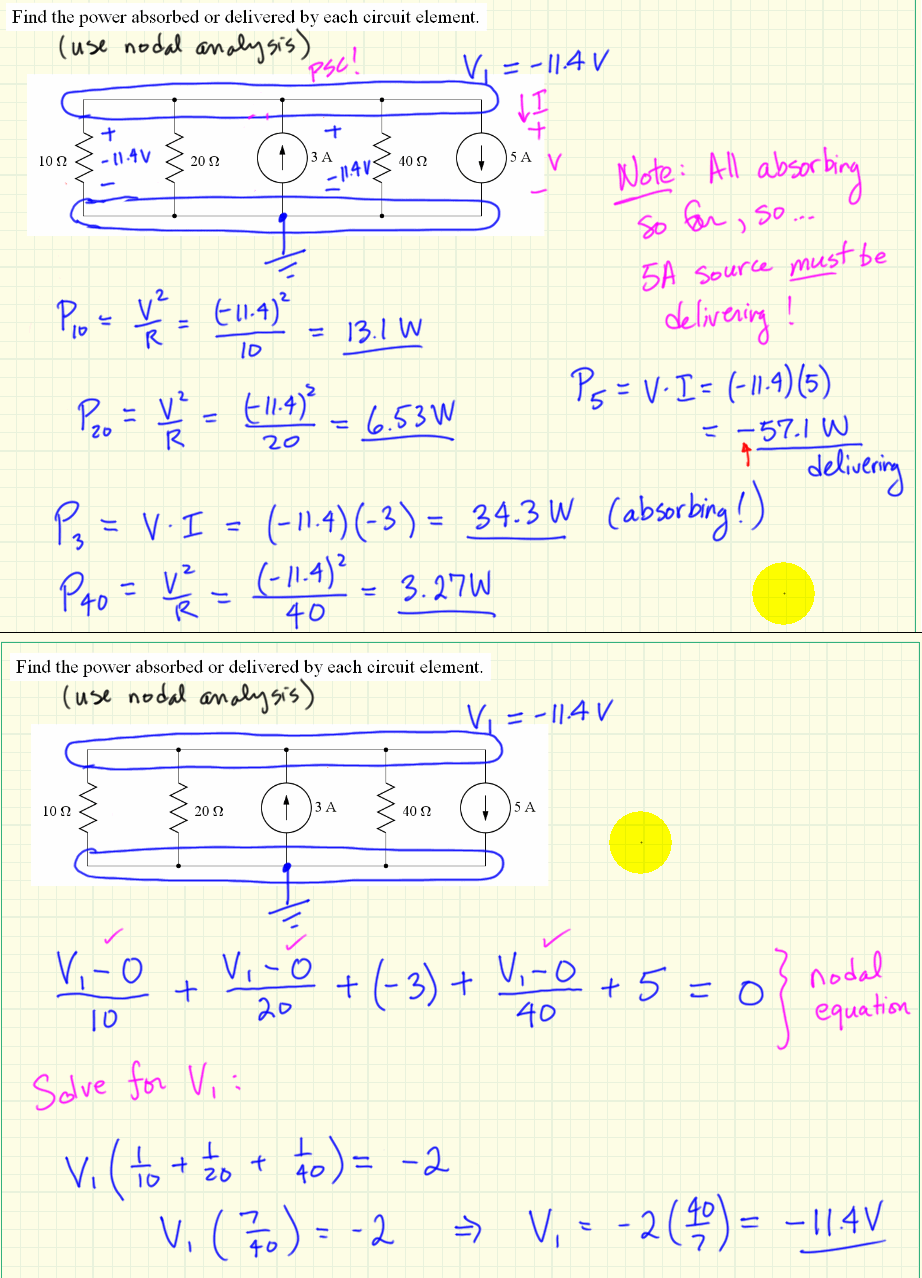 Find the power absorbed or delivered by each circuit element.
(use nodal analysis)
PSC!
V₁ = -11.4 V
↓I
+ + +
10 Ω -11.4V 20 Ω 3 A -11.4V 40 Ω 5 A V
- - -
Note: All absorbing
so far, so...
5A source must be
delivering!
P₁₀ = V²/R = (-11.4)²/10 = 13.1 W
P₂₀ = V²/R = (-11.4)²/20 = 6.53W
P₅ = V·I = (-11.4)(5)
= -57.1 W
delivering
P₃ = V·I = (-11.4)(-3) = 34.3 W (absorbing!)
P₄₀ = V²/R = (-11.4)²/40 = 3.27W
Find the power absorbed or delivered by each circuit element.
(use nodal analysis)
V₁ = -11.4 V
10 Ω 20 Ω 3 A 40 Ω 5 A
(V₁-0)/10 + (V₁-0)/20 + (-3) + (V₁-0)/40 + 5 = 0 } nodal
equation
Solve for V₁:
V₁(1/10 + 1/20 + 1/40) = -2
V₁(7/40) = -2 ⇒ V₁ = -2(40/7) = -11.4V